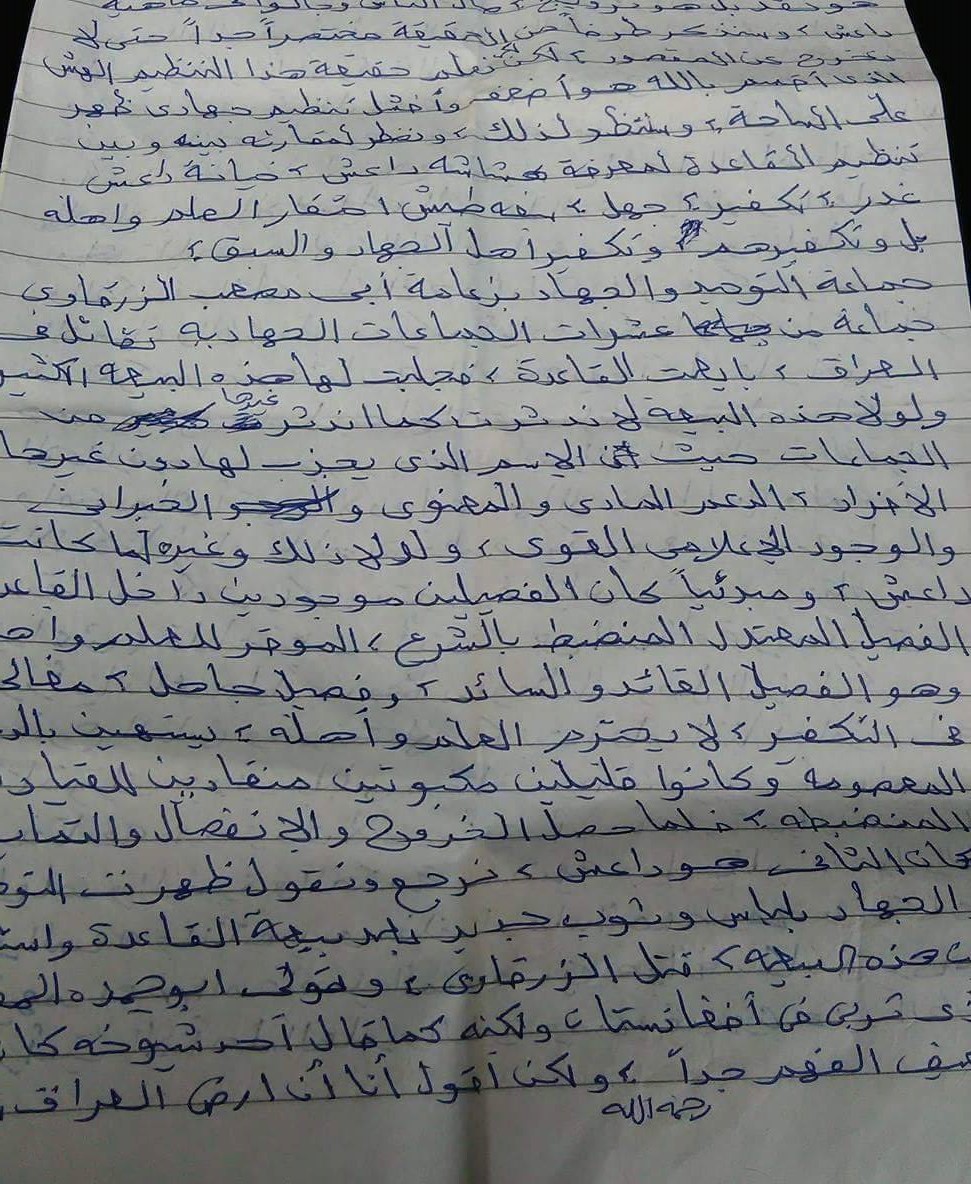 داعش، وسنذكر طرفاً من الحقيقة مختصراً جداً حتى لا
نخرج عن المقصود، لكن نعلم حقيقة هذا التنظيم الهش
الذى أقسم بالله هو أضعف وأفشل تنظيم جهادى ظهر
على الساحة، وسننظر لذلك، وننظر لمقارنة بينه وبين
تنظيم القاعدة لمعرفة هشاشة داعش، خيانة داعش
غدر، تكفير، جهل، سفه طيش احتقار العلم واهله
بل وتكفيرهم وتكفير أهل الجهاد والسبق،
جماعة التوحيد والجهاد بزعامة أبى مصعب الزرقاوى
جماعة من عشرات الجماعات الجهادية تقاتل فى
العراق، بايعت القاعدة، فجلبت لها هذه البيعة الكثير
ولولا هذه البيعة لاندثرت كما اندثر غيرها من
الجماعات حيث الاسم الذى يجذب لها دون غيرها
الأفراد، الدعم المادى والمعنوى والخبراتى
والوجود الإعلامى القوى، ولولا ذلك وغيره لما كانت
داعش، ومبدئياً كان الفصيلين موجودين داخل القاعد
الفصيل المعتدل المنضبط بالشرع، الموقر للعلم واه
وهو الفصيل القائد والسائد، وفصيل جاهل، مغالى
فى التكفير، لا يحترم العلم وأهله، يستهين بالد
المعصومة وكانوا قليلين مكبوتين منقادين للقياد
المنضبطة، فلما حصل الخروج والانفصال والتما
كان الثانى هو داعش، نرجع ونقول ظهرت التو
الجهاد بلباس وثوب جديد بعد بيعة القاعدة واست
هذه البيعة، قتل الزرقاوى، وتولى ابو حمزه الم
تربى فى أفغانستا، ولكنه كما قال أحد شيوخه كا
الفهم جداً، ولكن أقول أنا أن ارض العراق
رحمه الله